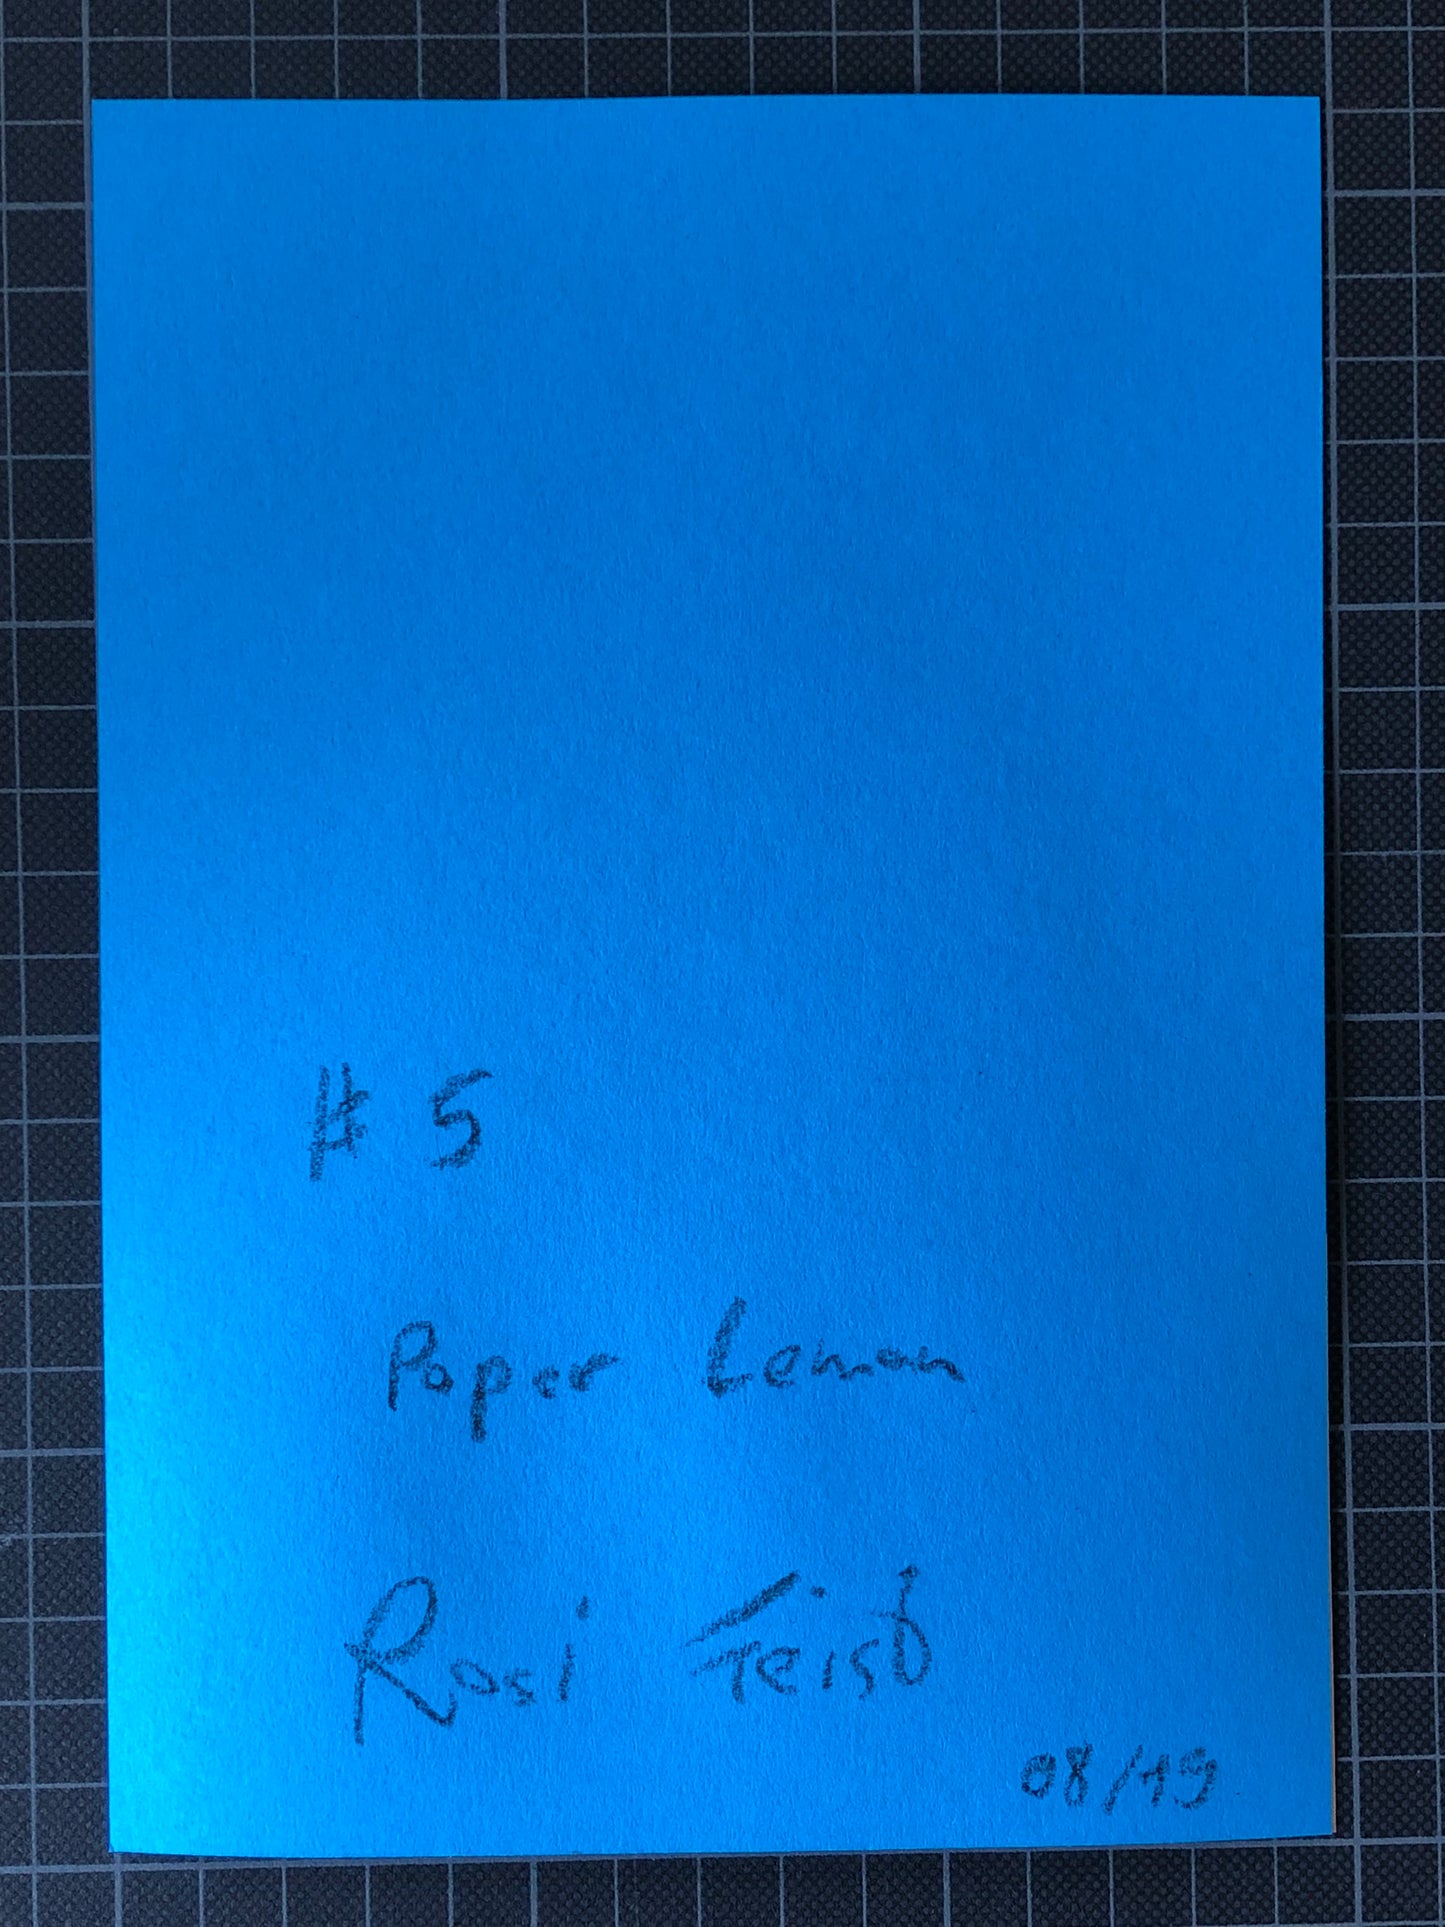 # 5
Paper Lemon
Rosi Feist
08/19